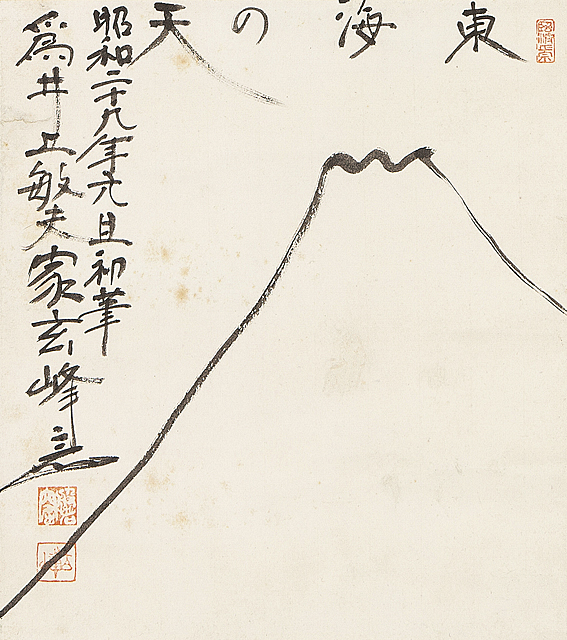 東海の天
昭和二十九年元旦初筆
為井上敏夫家玄峰